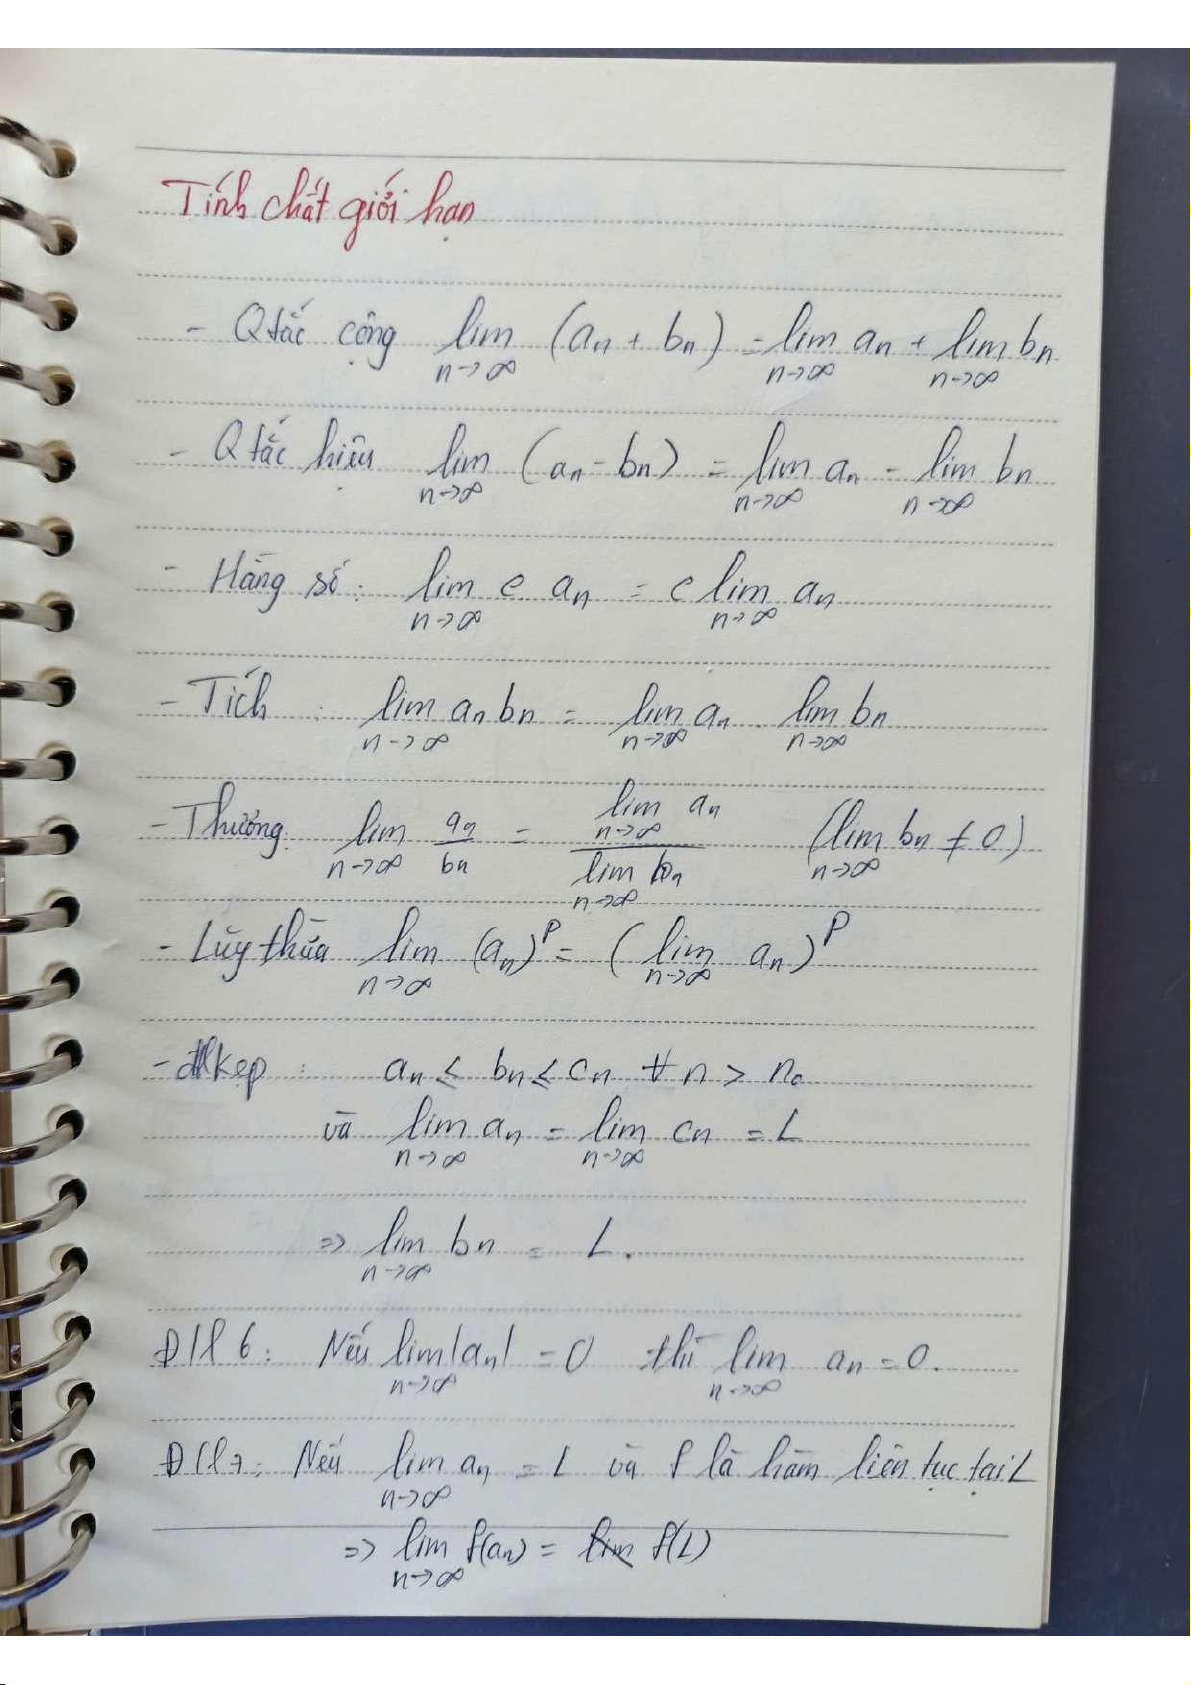 Tính chất giới hạn
- Qtắc cộng lim n→∞ (aₙ + bₙ) = lim n→∞ aₙ + lim n→∞ bₙ
- Qtắc hiệu lim n→∞ (aₙ - bₙ) = lim n→∞ aₙ - lim n→∞ bₙ
- Hằng số: lim n→∞ c aₙ = c lim n→∞ aₙ
- Tích : lim n→∞ aₙ bₙ = lim n→∞ aₙ . lim n→∞ bₙ
- Thương: lim n→∞ aₙ/bₙ = (lim n→∞ aₙ)/(lim n→∞ bₙ) (lim n→∞ bₙ ≠ 0)
- Lũy thừa lim n→∞ (aₙ)ᵖ = (lim n→∞ aₙ)ᵖ
- đl kẹp : aₙ ≤ bₙ ≤ cₙ ∀ n > n₀
và lim n→∞ aₙ = lim n→∞ cₙ = L
=> lim n→∞ bₙ = L.
Đlí 6: Nếu lim n→∞ |aₙ| = 0 thì lim n→∞ aₙ = 0.
Đlí 7: Nếu lim n→∞ aₙ = L và f là hàm liên tục tại L
=> lim n→∞ f(aₙ) = f(L)